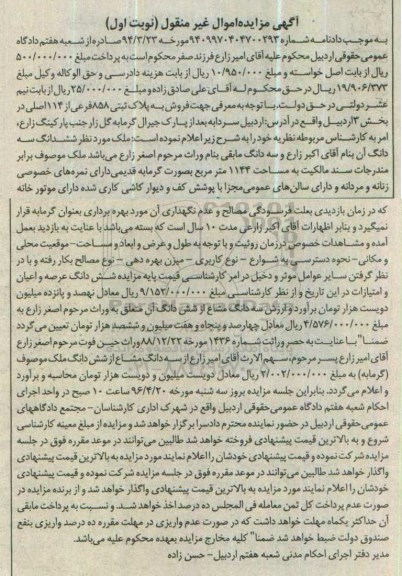 آگهی مزایده اموال غیر منقول (نوبت اول)
به موجب دادنامه شماره ۹۴۰۹۹۷۰۴۰۴۷۰۰۲۹۳ مورخه ۹۴/۳/۲۳ صادره از شعبه هفتم دادگاه
عمومی حقوقی اردبیل محکوم علیه آقای امیر زارع فرزند صفر محکوم است به پرداخت مبلغ ۵۰۰/۰۰۰/۰۰۰
ریال از بابت اصل خواسته و مبلغ ۱۰/۹۵۰/۰۰۰ ریال از بابت هزینه دادرسی و حق الوکاله وکیل مبلغ
۱۹/۹۰۶/۳۷۳ ریال در حق محکوم له آقای علی صادق زاده و مبلغ ۲۵/۰۰۰/۰۰۰ ریال از بابت نیم
عشر دولتی در حق دولت. با توجه به معرفی جهت فروش به پلاک ثبتی ۸۵۸ فرعی از ۱۱۴ اصلی در
بخش ۳ اردبیل واقع در آدرس: اردبیل سردابه بعد از پارک جیرال گرمابه گل زار جنب پارکینگ زارع،
امر به کارشناس مربوطه نظریه خود را به شرح زیر اعلام نموده است: ملک مورد نظر ششدانگ سه
دانگ آن بنام آقای اکبر زارع و سه دانگ مابقی بنام وراث مرحوم اصغر زارع می‌باشد ملک موصوف برابر
مندرجات سند مالکیت به مساحت ۱۱۴۴ متر مربع بصورت گرمابه قدیمی دارای نمره‌های خصوصی
زنانه و مردانه و دارای سالن‌های عمومی مجزا با پوشش کف و دیوار کاشی کاری شده دارای موتور خانه
که در زمان بازدیدی بعلت فرسودگی مصالح و عدم نگهداری آن مورد بهره برداری بعنوان گرمابه قرار
نمیگیرد و بنابر اظهارات آقای اکبر زارعی مدت ۱۰ سال است که بسته می‌باشد با عنایت به بازدید بعمل
آمده و مشاهدات خصوص در زمان روئیت و با توجه به طول و عرض و ابعاد و مساحت- موقعیت محلی
و مکانی- نحوه دسترسی به شوارع - نوع کاربری - میزن بهره دهی - نوع مصالح بکار رفته و با در
نظر گرفتن سایر عوامل موثر و دخیل در امر کارشناسی قیمت پایه مزایده شش دانگ عرصه و اعیان
و امتیازات در این تاریخ و از نظر کارشناسی مبلغ ۹/۱۵۲/۰۰۰/۰۰۰ ریال معادل نهصد و پانزده میلیون
دویست هزار تومان برآورد و ارزش سه دانگ مشاع از شش دانگ آن متعلق به وراث مرحوم اصغر زارع به
مبلغ ۴/۵۷۶/۰۰۰/۰۰۰ ریال معادل چهارصد و پنجاه و هفت میلیون و ششصد هزار تومان تعیین می‌گردد
ضمنا" با عنایت به حصر وراثت شماره ۱۴۳۶ مورخه ۸۸/۱۲/۲۲ وراث حین فوت مرحوم اصغر زارع
آقای امیر زارع پسر مرحوم، سهم الارث آقای امیر زارع از سه دانگ مشاع از شش دانگ ملک موصوف
(گرمابه) به مبلغ ۲/۰۰۲/۰۰۰/۰۰۰ ریال معادل دویست میلیون و دویست هزار تومان محاسبه و برآورد
و اعلام می‌گردد. بنابراین جلسه مزایده بروز سه شنبه مورخه ۹۶/۴/۲۰ ساعت ۱۰ صبح در واحد اجرای
احکام شعبه هفتم دادگاه عمومی حقوقی اردبیل واقع در شهرک اداری کارشناسان- مجتمع دادگاههای
عمومی حقوقی اردبیل در حضور نماینده محترم دادسرا برگزار خواهد شد و مزایده از مبلغ معینه کارشناسی
شروع و به بالاترین قیمت پیشنهادی فروخته خواهد شد طالبین می‌توانند در موعد مقرره فوق در جلسه
مزایده شرکت نموده و قیمت پیشنهادی خودشان را اعلام نمایند مورد مزایده به بالاترین قیمت پیشنهادی
واگذار خواهد شد طالبین می‌توانند در موعد مقرره فوق در جلسه مزایده شرکت نموده و قیمت پیشنهادی
خودشان را اعلام نمایند مورد مزایده به بالاترین قیمت پیشنهادی واگذار خواهد شد و از برنده مزایده در
صورت عدم پرداخت کل ثمن معامله فی المجلس ده درصد اخذ خواهد شد. و نسبت به پرداخت مابقی
آن حداکثر یکماه مهلت خواهد داشت که در صورت عدم واریزی در مهلت مقرره ده درصد واریزی بنفع
صندوق دولت ضبط خواهد شد ضمنا" کلیه مخارج مزایده بعهده محکوم علیه می‌باشد.
مدیر دفتر اجرای احکام مدنی شعبه هفتم اردبیل- حسن زاده